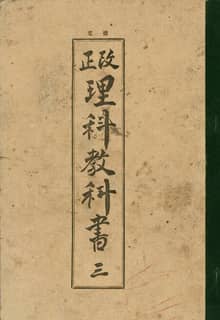 改正
理科教科書
三